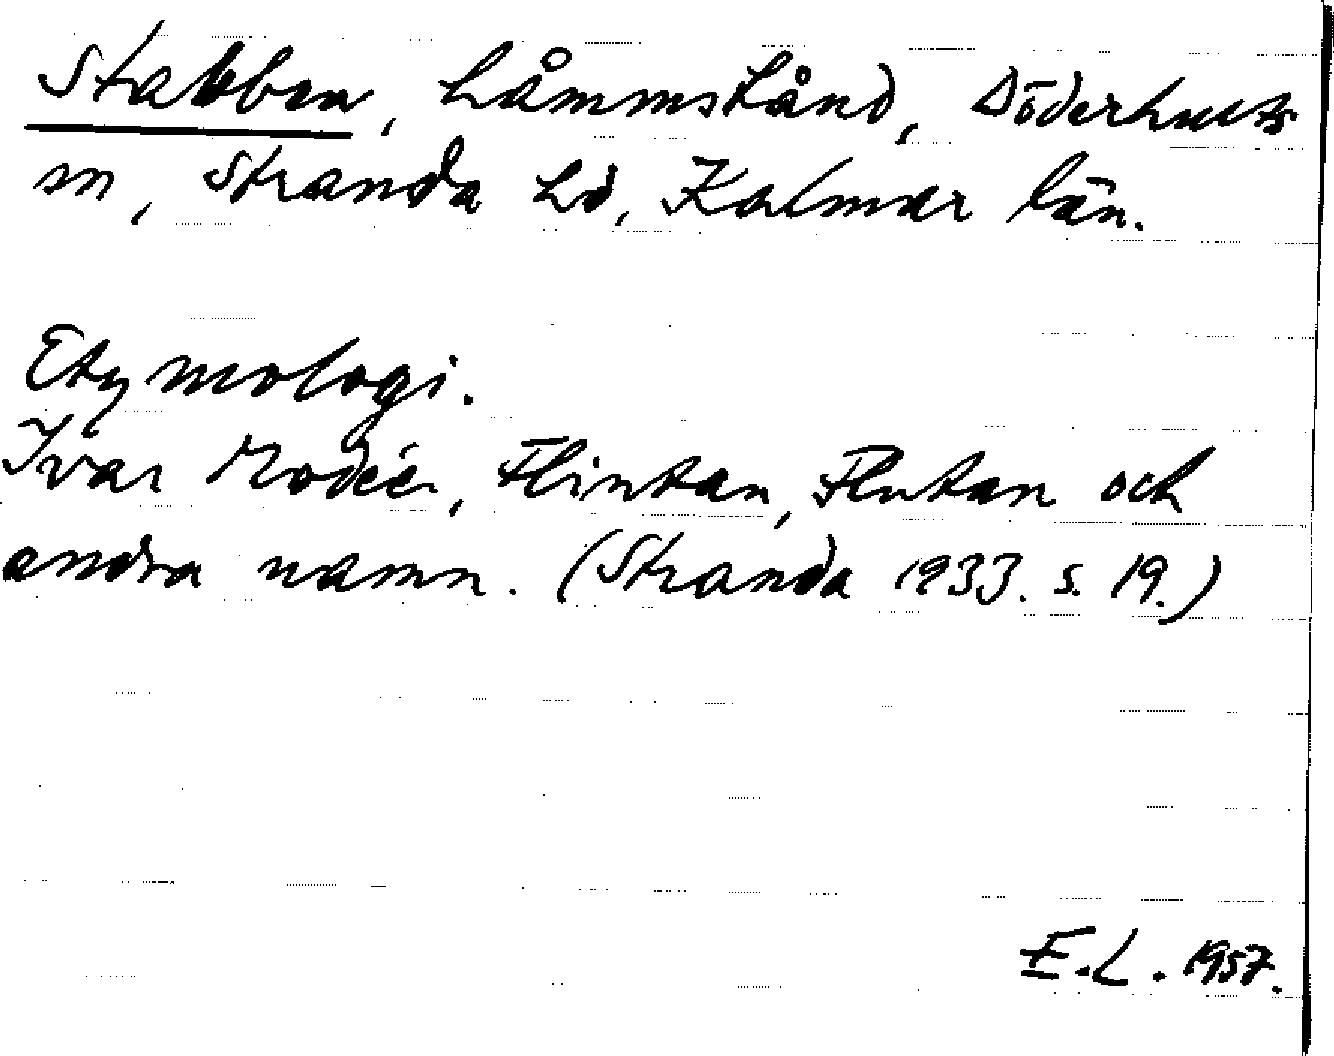 Stabben, Låmmshånd, Döderhults
sn, Stranda hd, Kalmar län.
Etymologi.
Ivar Modéer, Flintan, Flutan och
andra namn. (Stranda 1933. s. 19.)
E.L. 1957.